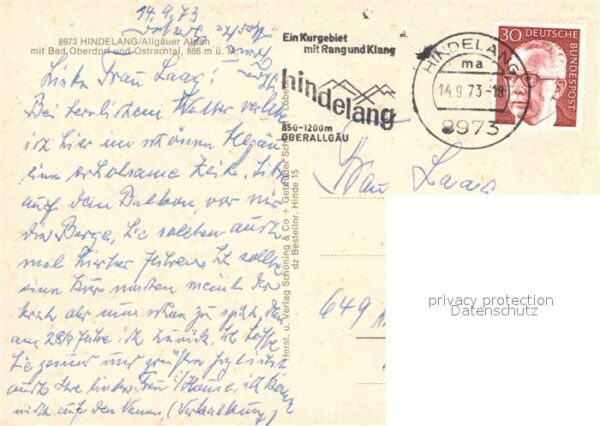 14.9.73
8973 HINDELANG/Allgäuer Alpen
mit Bad Oberdorf und Ostrachtal, 886 m ü. M.
Liebe Frau Laas!
Bei herrlichem Wetter verlebe
ich hier im schönen Allgäu
eine erholsame Zeit. Sitze
auf dem Balkon, vor mir
die Berge. Sie sollten auch
mal hierher fahren. Ich sollte
eine Kur machen meint der
Arzt aber nun schon zu spät, denn
am 28/9 fahre ich zurück. Ich hoffe
Sie gesund und grüße Sie herzlichst
auch Ihre liebe Frau
nicht auf den Namen. (Verkalkung)
Herst. u. Verlag Schöning & Co + Gebrüder Schmidt, Lübeck
dz Bestellnr. Hinde 15
Ein Kurgebiet
mit Rang und Klang
hindelang
850-1200m
OBERALLGÄU
HINDELANG
ma
14.9.73-18
8973
30 DEUTSCHE BUNDESPOST
Frau Laas
649
privacy protection
Datenschutz